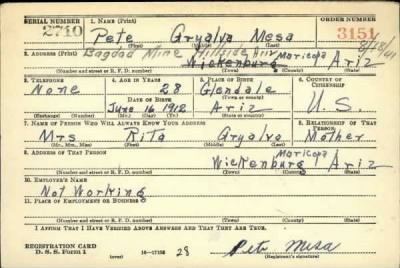 SERIAL NUMBER 1. NAME (Print) ORDER NUMBER
2710 Pete Gryalva Mesa 3151
(First) (Middle) (Last)
2. ADDRESS (Print) Bagdad Mine Hillside Ariz 8/18/41
Wickenburg Maricopa Ariz
(Number and street or R. F. D. number) (Town) (County) (State)
3. TELEPHONE 4. AGE IN YEARS 5. PLACE OF BIRTH 6. COUNTRY OF CITIZENSHIP
None 28 Glendale
DATE OF BIRTH (Town or county)
June 16 1912 Ariz U.S.
(Exchange) (Number) (Mo.) (Day) (Yr.) (State or country)
7. NAME OF PERSON WHO WILL ALWAYS KNOW YOUR ADDRESS 8. RELATIONSHIP OF THAT PERSON
Mrs Rita Gryalva Mother
(Mr., Mrs., Miss) (First) (Middle) (Last)
9. ADDRESS OF THAT PERSON
Wickenburg Maricopa Ariz
(Number and street or R. F. D. number) (Town) (County) (State)
10. EMPLOYER'S NAME
Not Working
11. PLACE OF EMPLOYMENT OR BUSINESS
(Number and street or R. F. D. number) (Town) (County) (State)
I AFFIRM THAT I HAVE VERIFIED ABOVE ANSWERS AND THAT THEY ARE TRUE.
REGISTRATION CARD
D. S. S. Form 1 (over) 16—17105 28 Pete Mesa
(Registrant's signature)